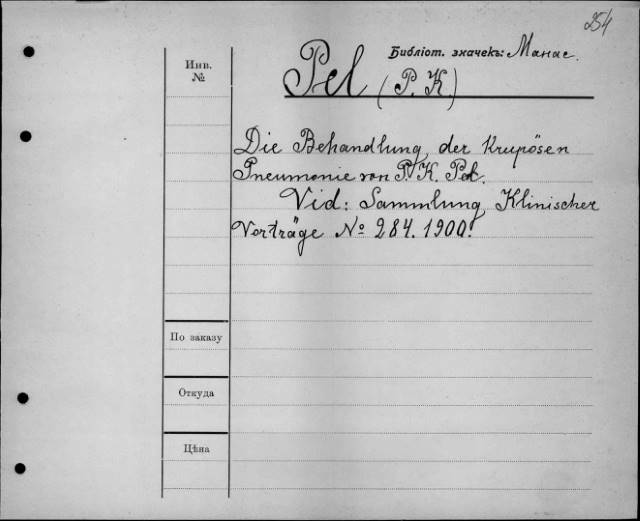 254
Библіот. значекъ: Манас.
Инв.
№
Pel (P. K.)
Die Behandlung der Krupösen
Pneumonie von P. K. Pel.
Vid: Sammlung Klinischer
Vorträge № 284. 1900.
По заказу
Откуда
Цѣна